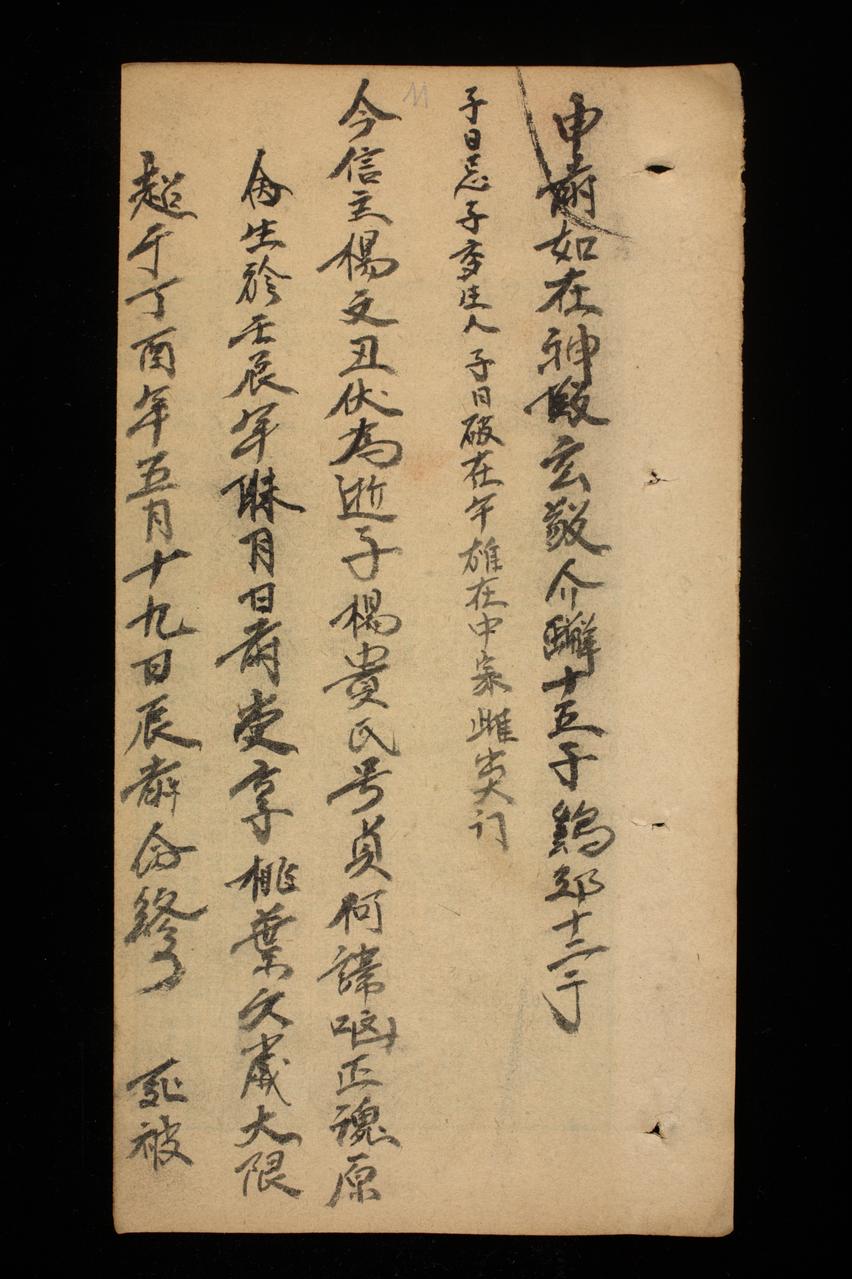 申前如在神殿玄敬介 十五子鷄卵十二个
子日忌子 生人子日破在午雄在中家雌 门
今信主楊文丑伏為逝子楊貴氏号貞何諱 正魂原
命生於壬辰年 月日前 享桃葉 歲大限
超于丁酉年五月十九日辰 命終了 死被
11